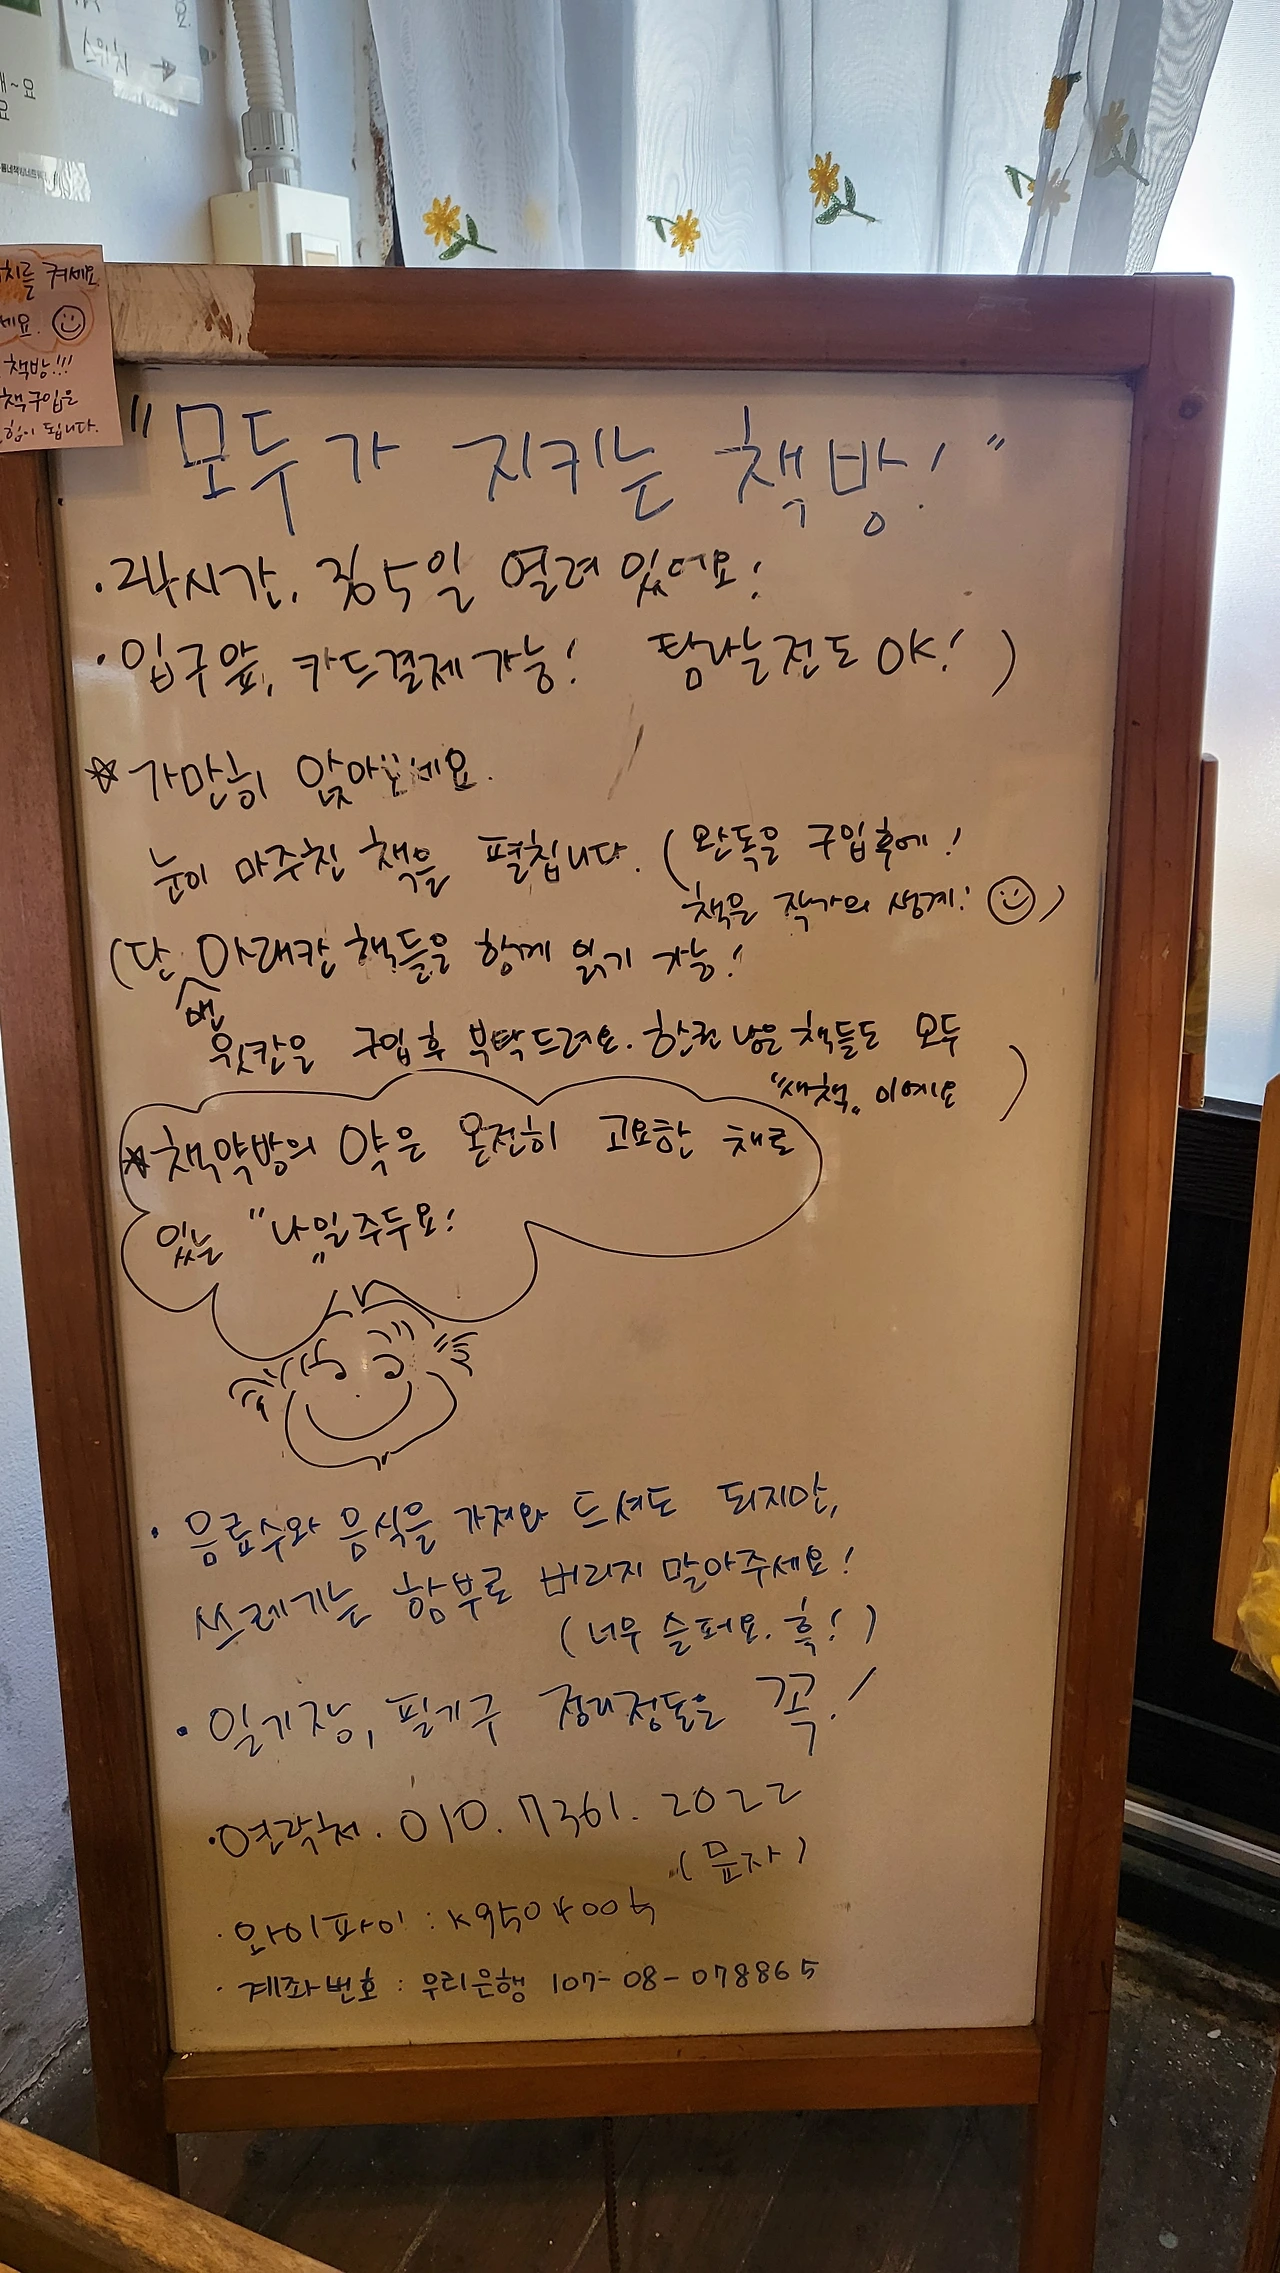 요.
스위치 →
개~요
요
동네책방네트워크
치를 켜세요
세요. ☺
책방!!!
책구입은
힘이 됩니다.
"모두가 지키는 책방!"
· 24시간, 365일 열려있어요!
· 입구앞, 카드결제가능! 탐나는전도 OK! )
☆ 가만히 앉아보세요.
눈이 마주친 책을 펼칩니다. (완독은 구입후에!
책은 작가의 생계! ☺)
(단, 맨 아래칸 책들은 함께 읽기 가능!
윗칸은 구입 후 부탁드려요. 한권 남은 책들도 모두
"새책" 이예요 )
★ 책약방의 약은 온전히 고요한 채로
있는 "나" 일주두요!
· 음료수와 음식을 가져와 드셔도 되지만,
쓰레기는 함부로 버리지 말아주세요!
(너무 슬퍼요. 흑!)
· 일기장, 필기구 정리정돈은 꼭!
· 연락처. 010. 7361. 2022
(문자)
· 와이파이 : K9504005
· 계좌번호 : 우리은행 107-08-078865